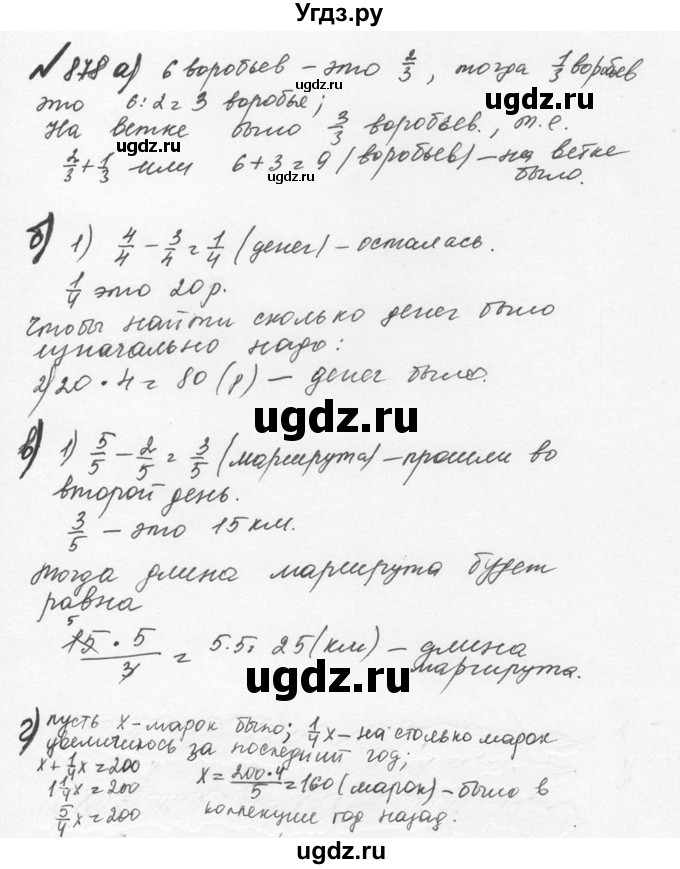 Угдз.ру
№ 878 а) 6 воробьев – это 2/3, тогда 1/3 воробьев
это 6 : 2 = 3 воробье;
На ветке было 3/3 воробьев., т.е.
2/3 + 1/3 или 6 + 3 = 9 (воробьев) – на ветке
было.
б) 1) 4/4 – 3/4 = 1/4 (денег) – осталась.
1/4 это 20 р.
Чтобы найти сколько денег было
изначально надо:
2) 20 · 4 = 80 (р) – денег было.
в) 1) 5/5 – 2/5 = 3/5 (маршрута) – прошли во
второй день.
3/5 – это 15 км.
тогда длина маршрута будет
равна
5
15 · 5 / 3 = 5·5 = 25 (км) – длина
маршрута.
г) пусть x – марок было; 1/4 x – на столько марок
увеличилось за последний год;
x + 1/4 x = 200
1 1/4 x = 200
5/4 x = 200
x = 200·4 / 5 = 160 (марок) – было в
коллекции год назад.
ugdz.ru
ugdz.ru
ugdz.ru
ugdz.ru
ugdz.ru
ugdz.ru
ugdz.ru
ugdz.ru
ugdz.ru